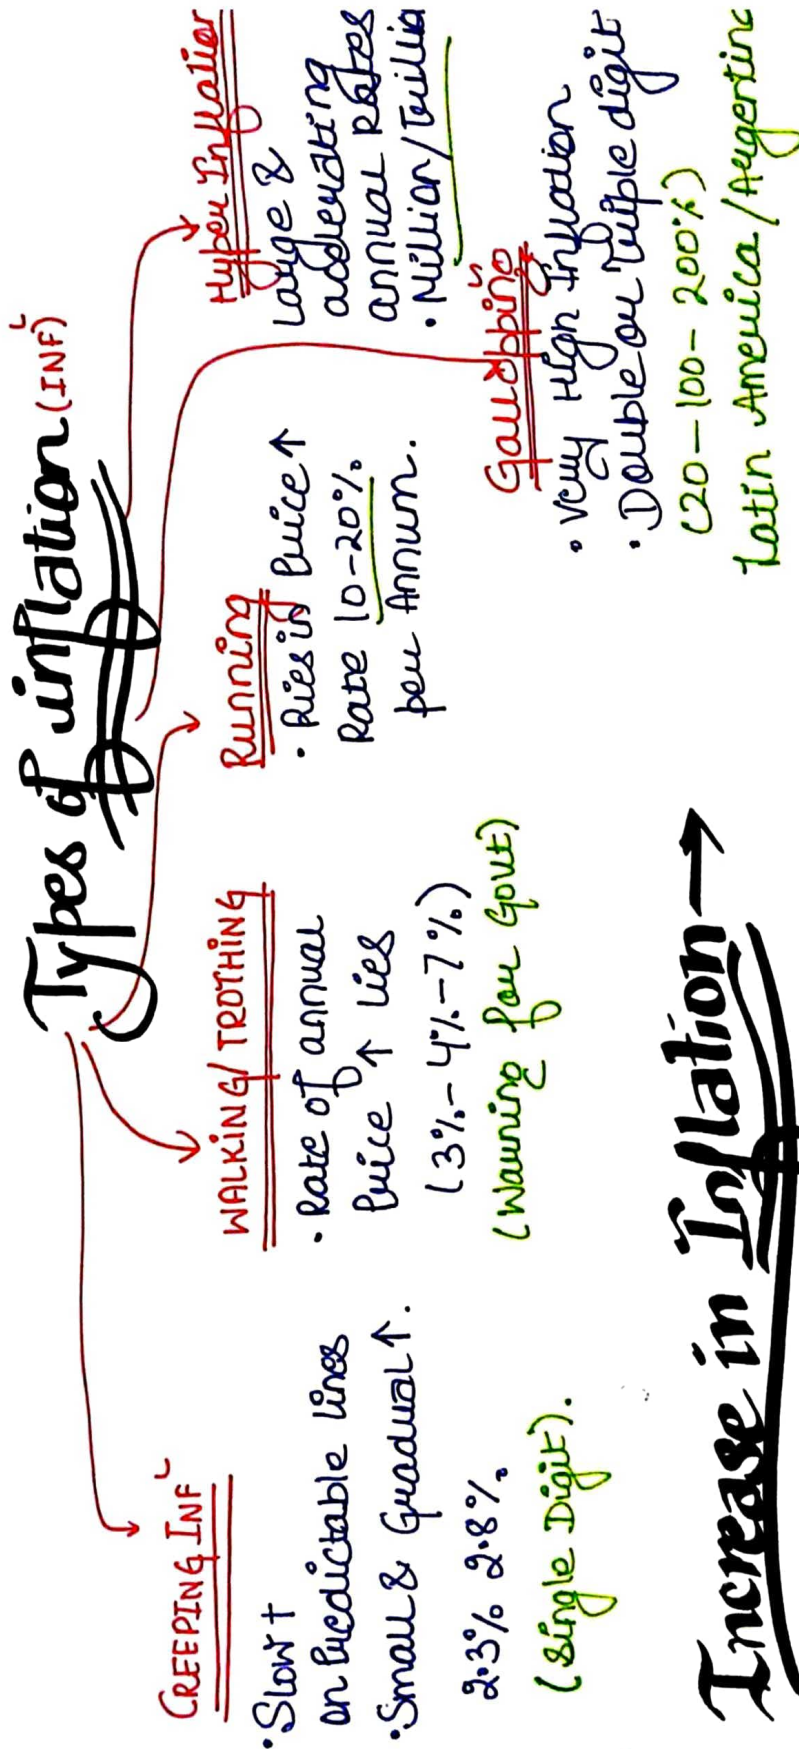 Types of inflation (INFⁿ)
CREEPING INFⁿ
• Slow +
on Predictable lines
• Small & Gradual ↑.
2.3% 2.8%
(Single Digit).
WALKING/TROTHING
• Rate of annual
Price ↑ lies
(3%-4%-7%)
(Warning for Govt)
Running
• Ries in Price ↑
Rate 10-20%
per Annum.
Gallopping
• Very High Inflation
• Double or Triple digit
(20-100-200%)
Latin America/Argentina
Hyper Inflation
Large &
acclerating
annual Rates
• Million/Trillion
Increase in Inflation →